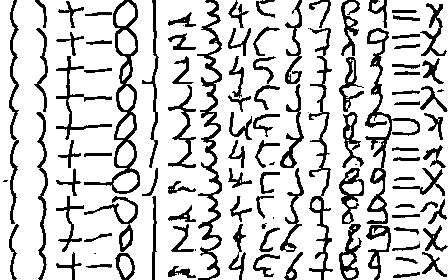 ( ) + - 0 1 2 3 4 5 3 7 8 9 = x
( ) + - 0 1 2 3 4 5 3 7 8 9 = x
( ) + - 0 1 2 3 4 5 6 7 8 9 = x
( ) + - 0 1 2 3 4 5 3 7 8 9 = x
( ) + - 0 1 2 3 4 5 3 7 8 9 = x
( ) + - 0 1 2 3 4 5 8 7 8 9 = x
( ) + - 0 1 2 3 4 5 3 7 8 9 = x
( ) + - 0 1 2 3 4 5 3 9 8 9 = x
( ) + - 0 1 2 3 4 5 6 7 8 9 = x
( ) + - 0 1 2 3 4 5 6 7 8 9 = x